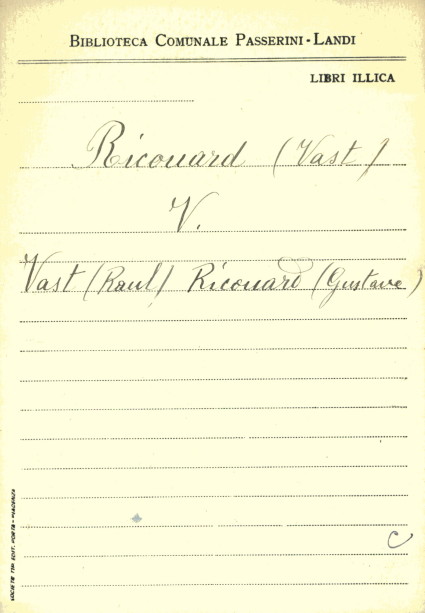 BIBLIOTECA COMUNALE PASSERINI-LANDI
LIBRI ILLICA
Ricouard (Vast)
V.
Vast (Raul) Ricouard (Gustave)
C